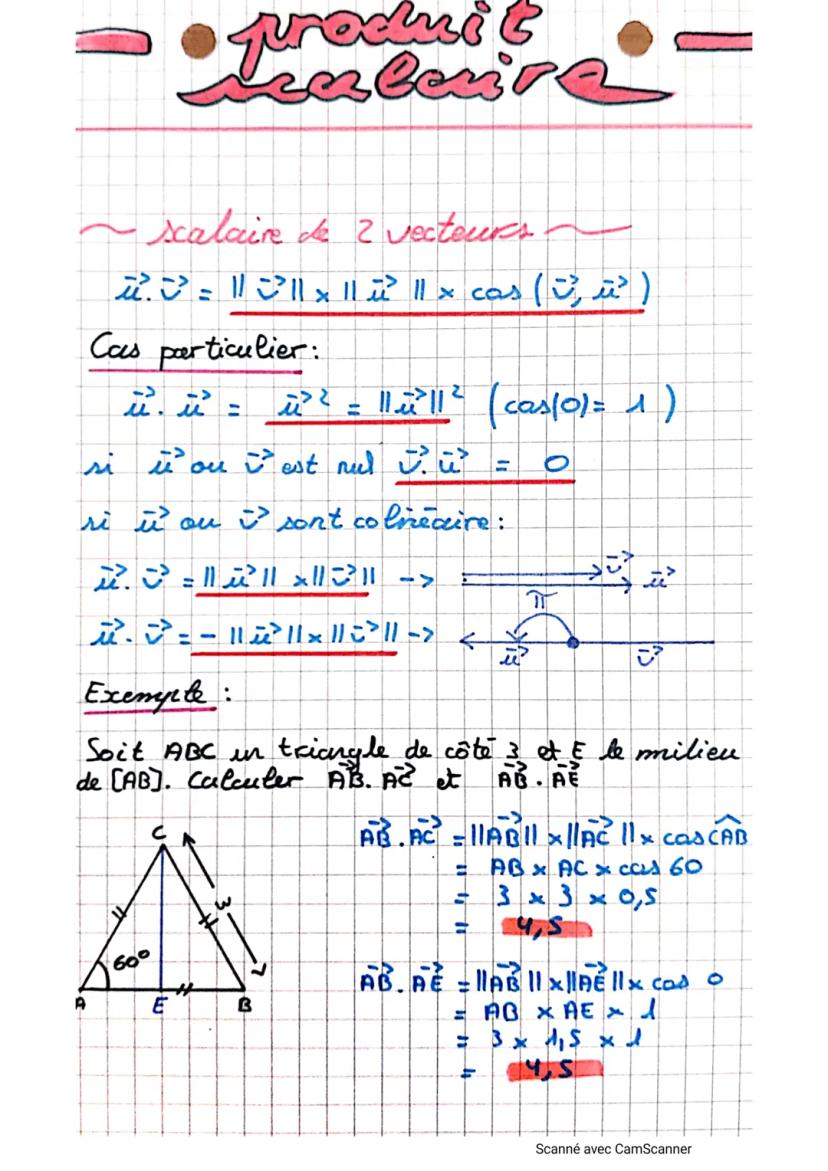 produit
scalaire
~ scalaire de 2 vecteurs ~
u⃗.v⃗ = ||v⃗|| x ||u⃗|| x cos (v⃗, u⃗)
Cas particulier :
u⃗. u⃗ = u⃗² = ||u⃗||² (cos(0) = 1)
si u⃗ ou v⃗ est nul v⃗. u⃗ = 0
si u⃗ ou v⃗ sont colinéaire :
u⃗. v⃗ = ||u⃗|| x ||v⃗|| -> v⃗ u⃗
u⃗. v⃗ = - ||u⃗|| x ||v⃗|| -> π u⃗ v⃗
Exemple :
Soit ABC un triangle de côté 3 et E le milieu
de [AB]. Calculer AB⃗. AC⃗ et AB⃗. AE⃗
C 3 60° A E B
AB⃗. AC⃗ = ||AB⃗|| x ||AC⃗|| x cos CAB̂
= AB x AC x cos 60
= 3 x 3 x 0,5
= 4,5
AB⃗. AE⃗ = ||AB⃗|| x ||AE⃗|| x cos 0
= AB x AE x 1
= 3 x 1,5 x 1
= 4,5
Scanné avec CamScanner